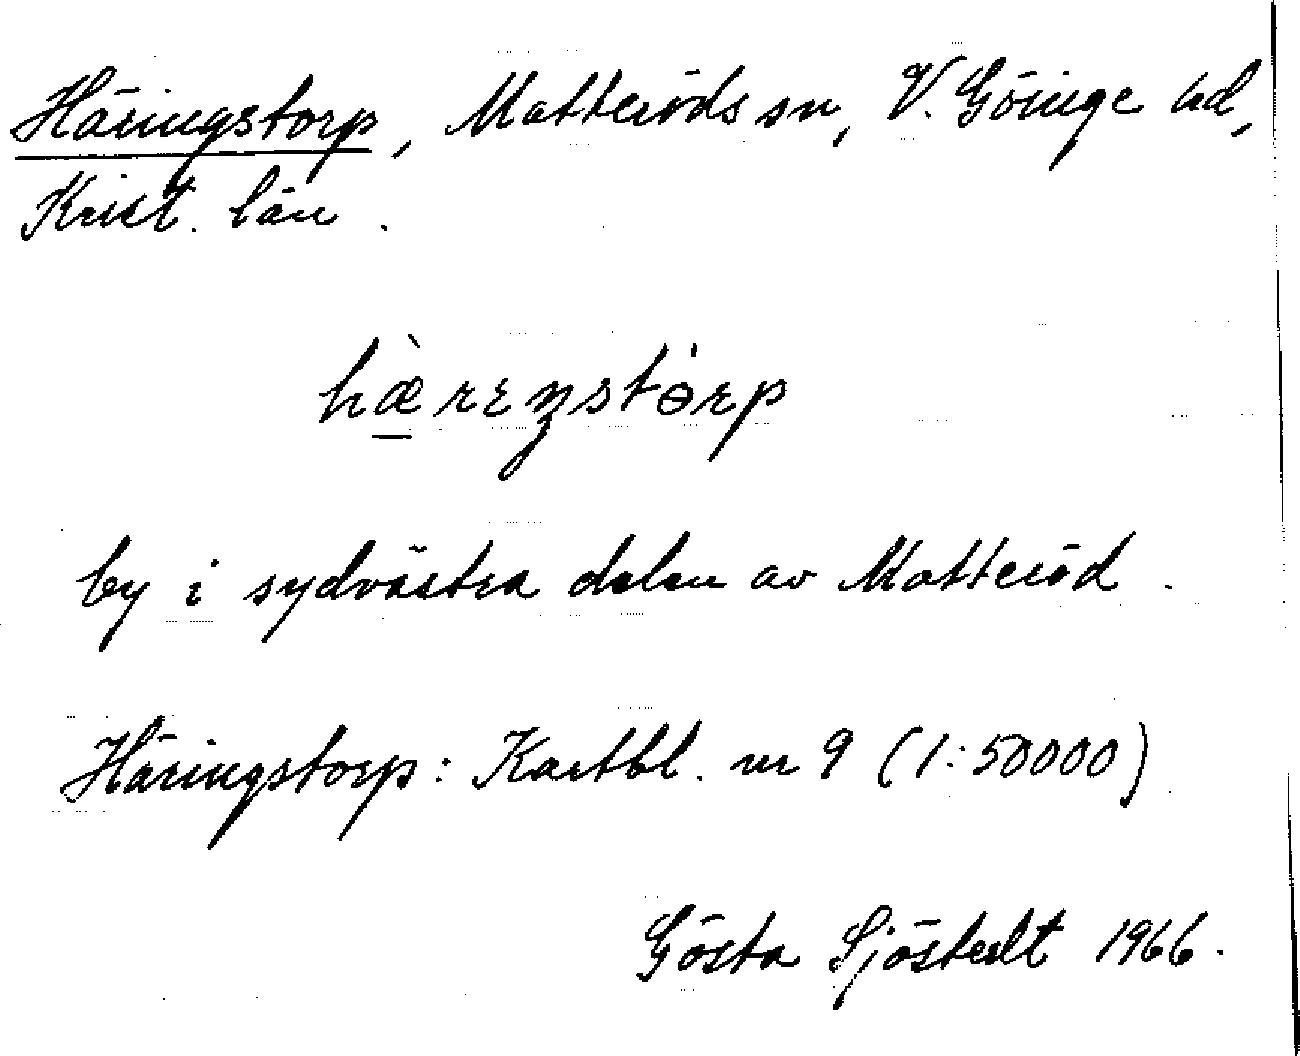 Häringstorp, Matteröds sn, V. Göinge hd,
Krist. län.
hæ̠̀rɛŋstɵ̇rp
by i sydvästra delen av Matteröd.
Häringstorp: Kartbl. nr 9 (1:50000)
Gösta Sjöstedt 1966.